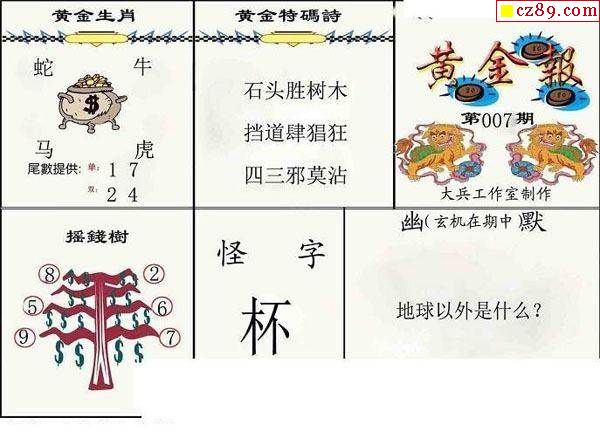 黄金生肖
蛇 牛
$
马 虎
尾數提供: 单: 1 7
双: 2 4
黄金特碼詩
石头胜树木
挡道肆猖狂
四三邪莫沾
cz89.com
黄金報
第007期
大兵工作室制作
摇錢樹
⑧ ②
⑤ ⑥
⑨ ⑦
$ $ $ $ $ $ $ $ $ $
怪 字
杯
幽(玄机在期中)默
地球以外是什么？